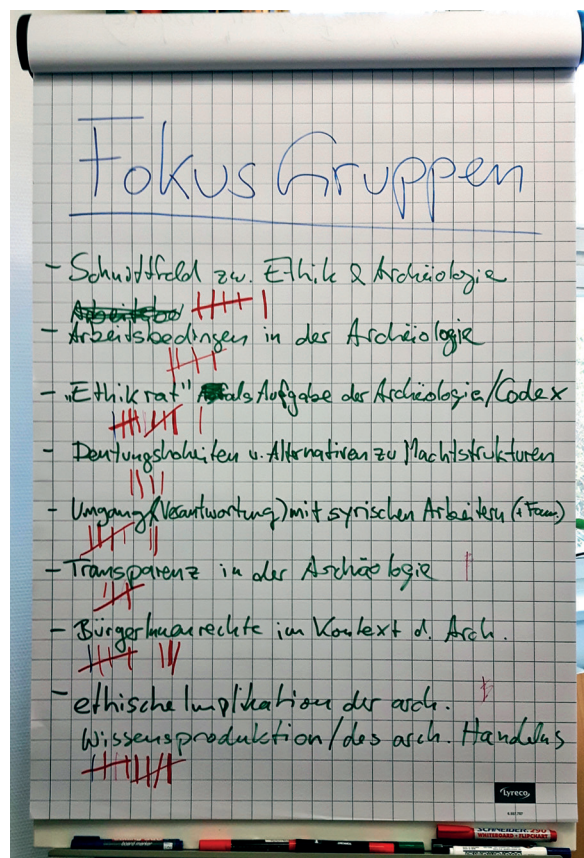 Fokus Gruppen
- Schnittfeld zw. Ethik & Archäologie
- Arbeitsbedingen in der Archäologie
- "Ethikrat" als Aufgabe der Archäologie/Codex
- Deutungshoheiten u. Alternativen zu Machtstrukturen
- Umgang (Verantwortung) mit syrischen Arbeitern (+ Fam.)
- Transparenz in der Archäologie
- BürgerInnenrechte im Kontext d. Arch.
- ethische Implikation der arch.
Wissensproduktion/des arch. Handelns
Lyreco
SCHNEIDER 290
WHITEBOARD + FLIPCHART
board marker